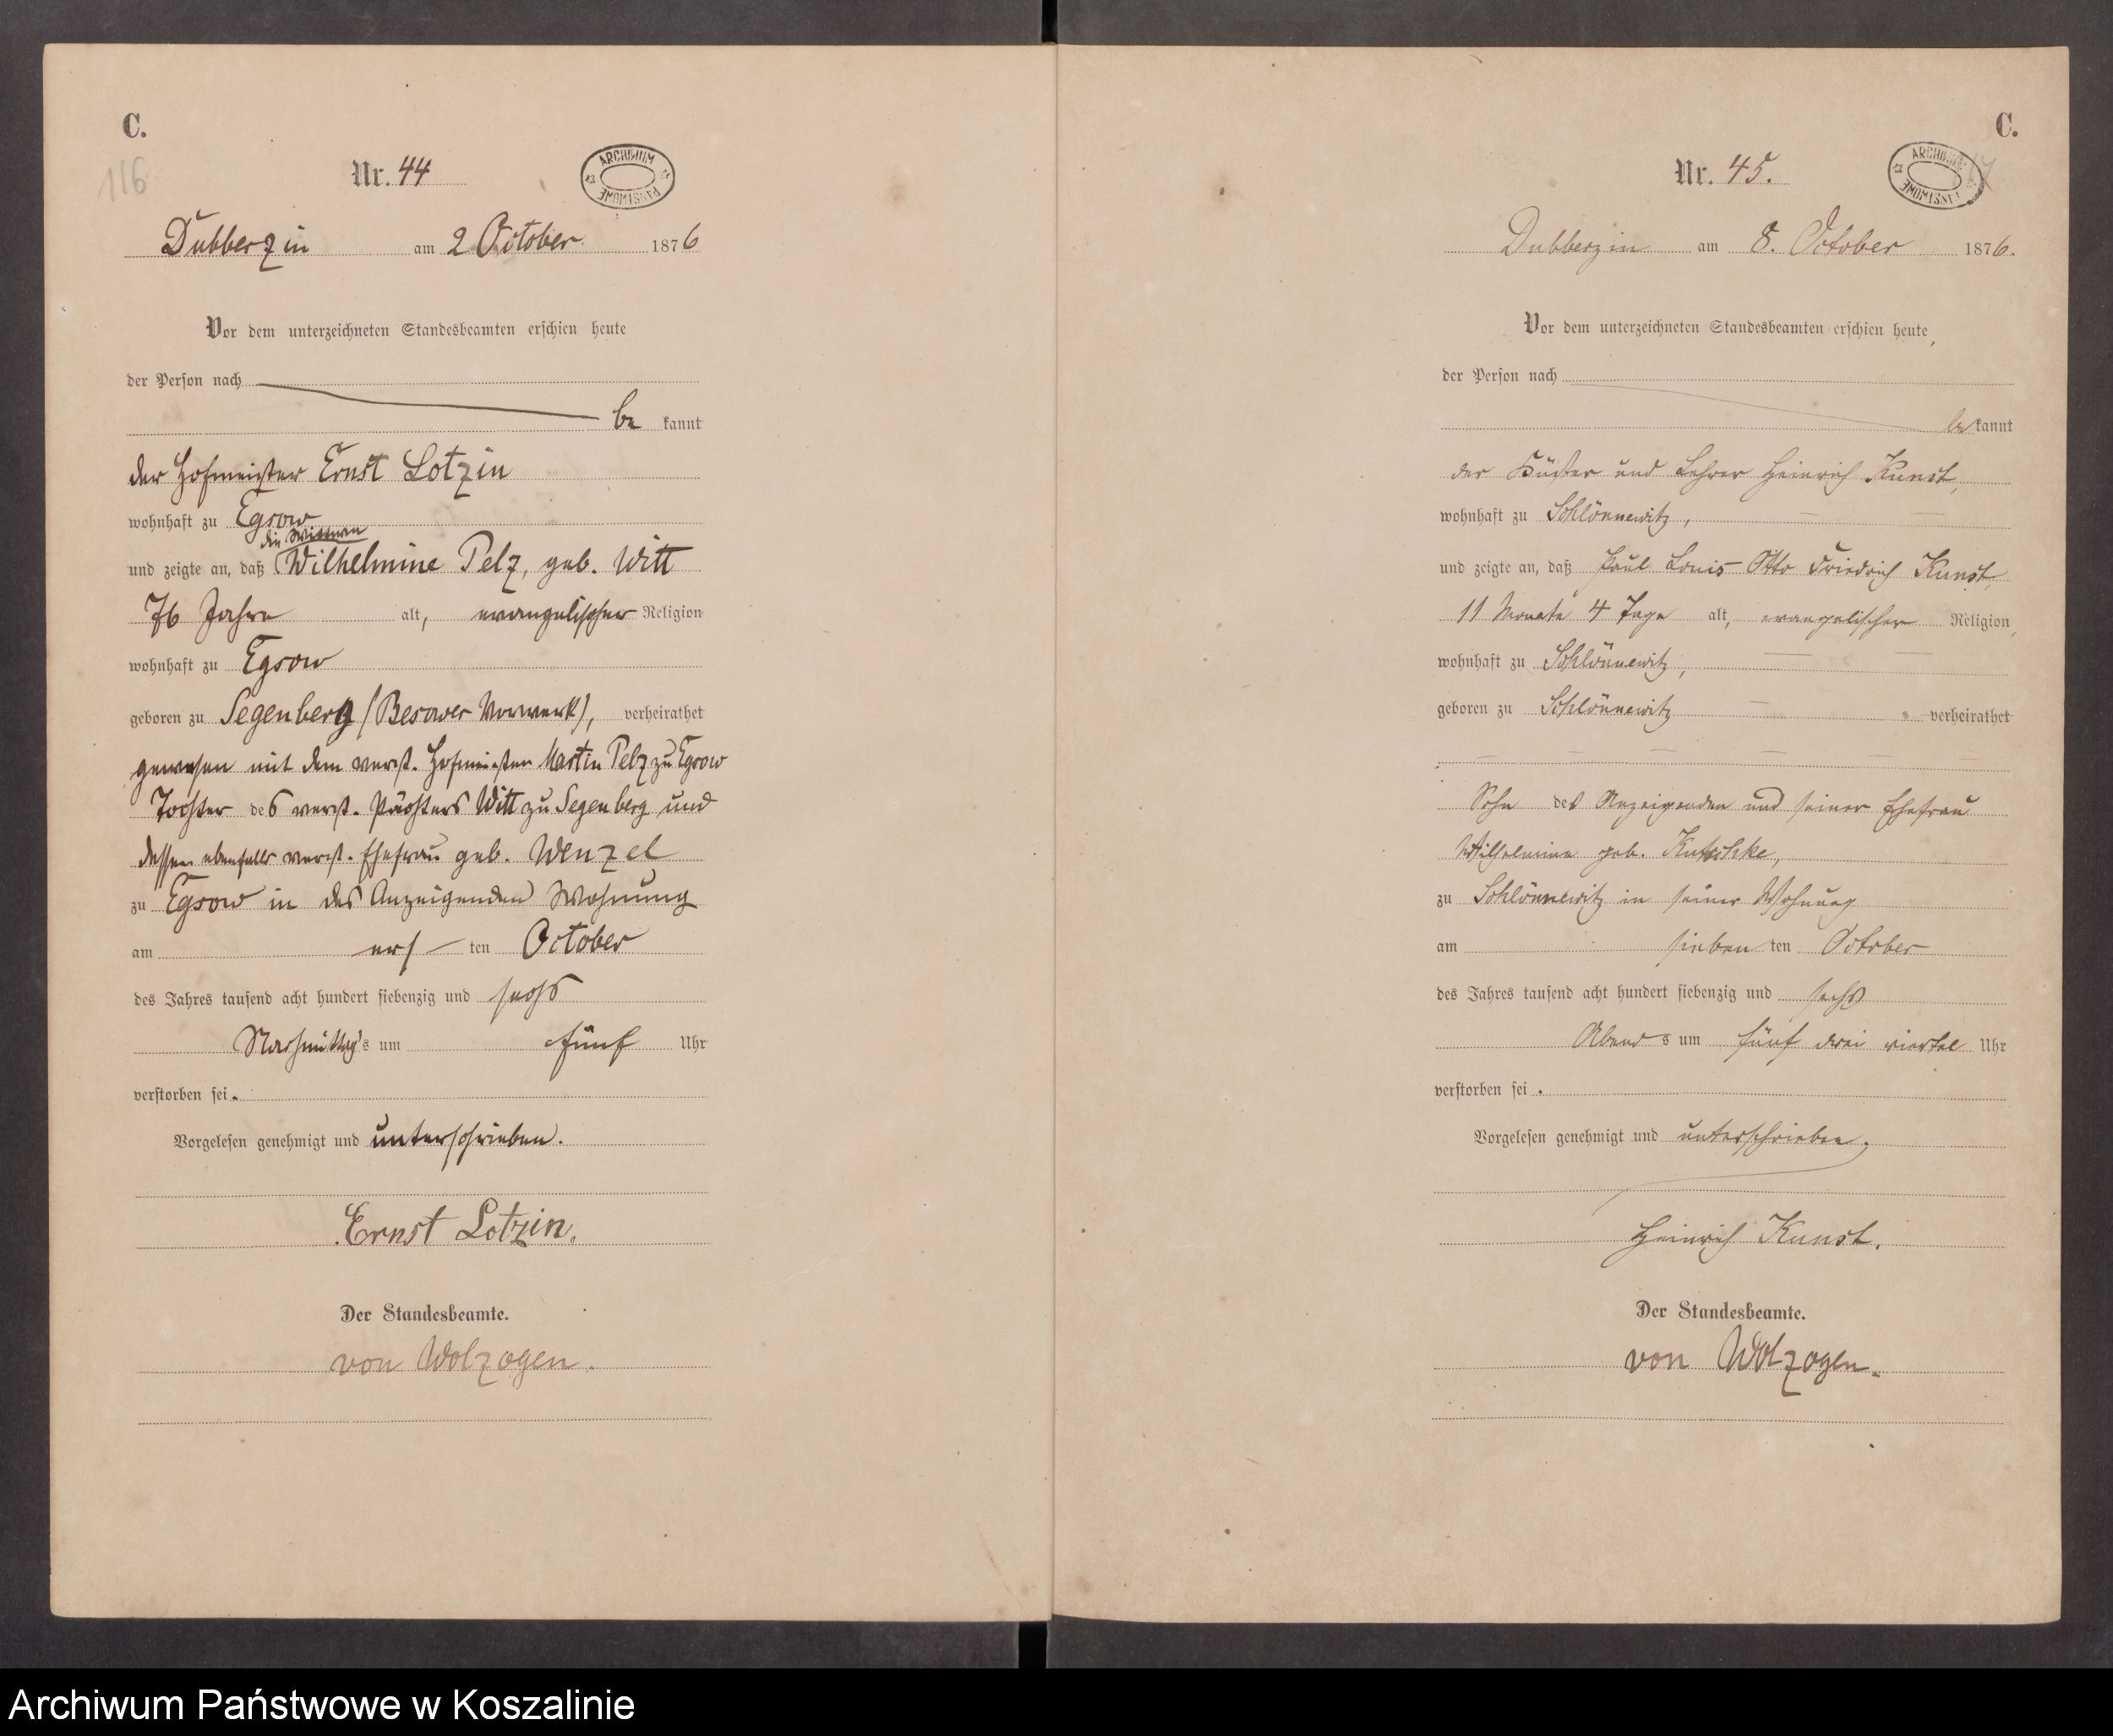 C.
116
Nr. 44
ARCHIWUM PAŃSTWOWE
Dubberzin am 2 October 1876
Vor dem unterzeichneten Standesbeamten erschien heute
der Person nach
be kannt
der Hofmeister Ernst Lotzin
wohnhaft zu Egsow
die Wittwe
und zeigte an, daß Wilhelmine Pelz, geb. Witt
76 Jahre alt, evangelischer Religion
wohnhaft zu Egsow
geboren zu Segenberg (Besower Vorwerk), verheirathet
gewesen mit dem verst. Hofmeister Martin Pelz zu Egsow
Tochter des verst. Pächters Witt zu Segenberg und
dessen ebenfalls verst. Ehefrau geb. Wenzel
zu Egsow in des Anzeigenden Wohnung
am ers ten October
des Jahres tausend acht hundert siebenzig und sechs
Nachmittag's um fünf Uhr
verstorben sei.
Vorgelesen genehmigt und unterschrieben.
Ernst Lotzin.
Der Standesbeamte.
von Wolzogen.
C.
Nr. 45.
ARCHIWUM PAŃSTWOWE
Dubberzin am 8. October 1876.
Vor dem unterzeichneten Standesbeamten erschien heute,
der Person nach
be kannt
der Küster und Lehrer Heinrich Kunst,
wohnhaft zu Schlönnewitz,
und zeigte an, daß Paul Louis Otto Friedrich Kunst,
11 Monate 4 Tage alt, evangelischer Religion,
wohnhaft zu Schlönnewitz,
geboren zu Schlönnewitz verheirathet
Sohn des Anzeigenden und seiner Ehefrau
Wilhelmine geb. Kutschke,
zu Schlönnewitz in seiner Wohnung
am sieben ten October
des Jahres tausend acht hundert siebenzig und sechs
Abend s um fünf drei viertel Uhr
verstorben sei.
Vorgelesen genehmigt und unterschrieben.
Heinrich Kunst.
Der Standesbeamte.
von Wolzogen.
Archiwum Państwowe w Koszalinie